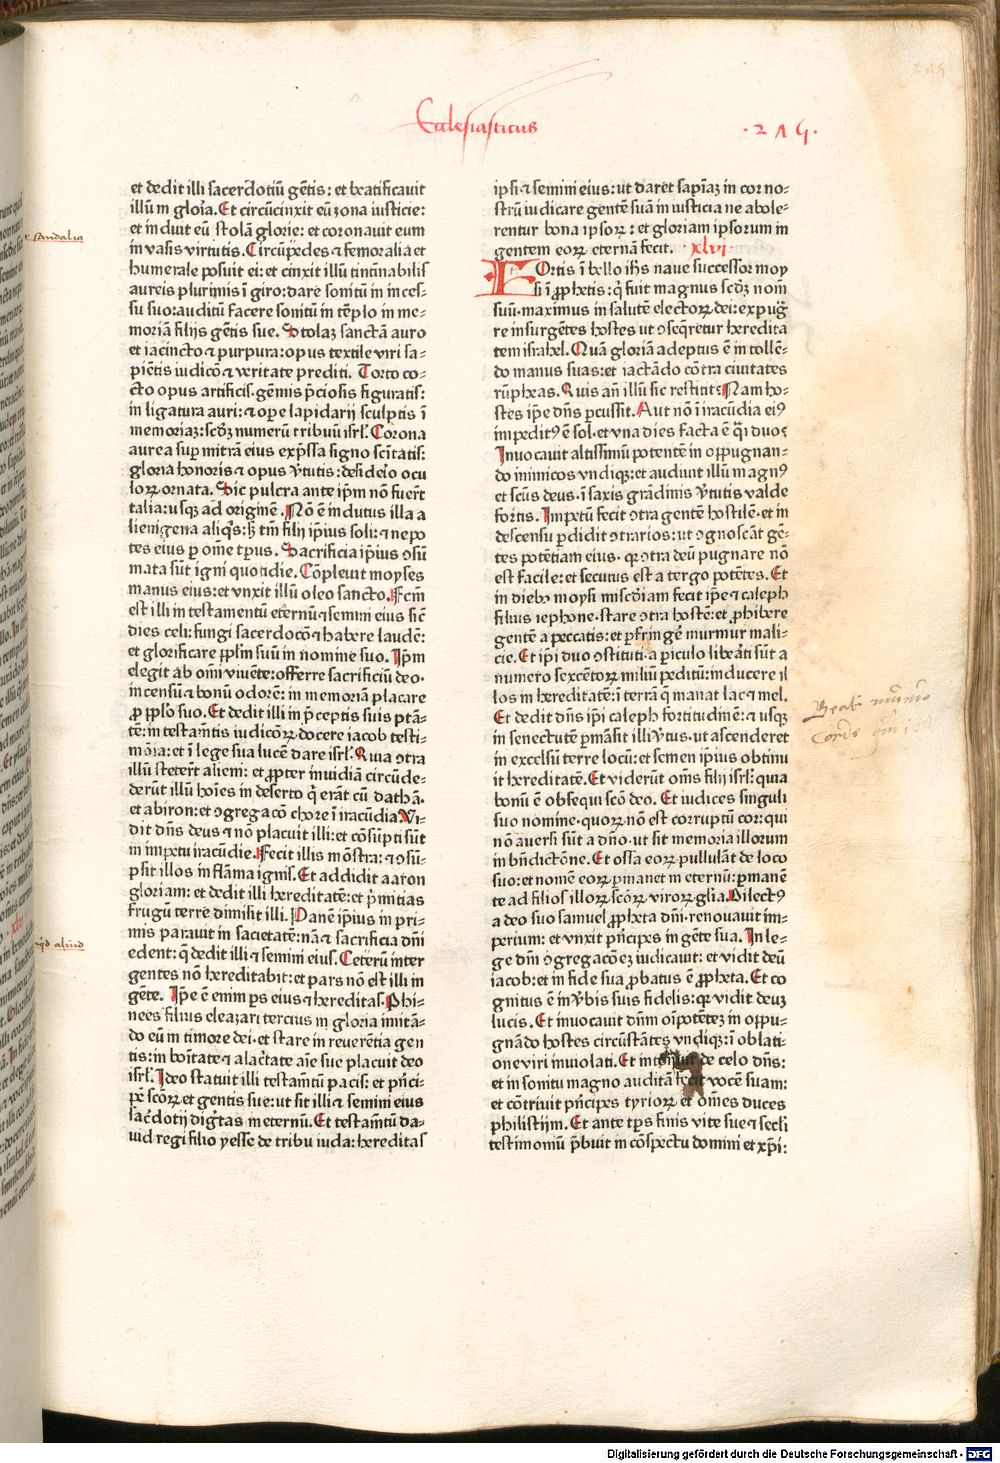 Ecclesiasticus
·215·
sandalia
et dedit illi sacerdotiū gētis: et beatificauit
illū in glor̄ia. Et circūcinxit eū zona iusticie:
et induit eū stolā glorie: et coronauit eum
in vasis virtutis. Circūpedes ⁊ femoralia et
humerale posuit ei: et cinxit illū tintīnabilis
aureis plurimis ī giro: dare sonitū in inces-
su suo: auditū facere sonitū in tēplo in me-
moriā filijs gētis sue. Stolaꝫ sanctā auro
et iacincto ⁊ purpura: opus textile viri sa-
piētis iudicō ⁊ veritate prediti. Torto co-
cto opus artificis. gēmis p̄ciosis figuratis:
in ligatura auri: ⁊ oꝑe lapidarij sculptis ī
memoriaꝫ: scd̄ꝫ numerū tribuū isrl̄. Corona
aurea suꝑ mitrā eius exp̄ssa signo scītatis:
gloria honoris ⁊ opus v̄tutis: desideīo ocu
loꝝ ornata. Sic pulcra ante ip̄m nō fuer̄t
talia: usqꝫ ad originē. Nō ē indutus illa a
lienigena aliq̄s: sꝫ tm̄ filij ip̄ius soli: ⁊ nepo
tes eius ꝑ om̄e tp̄us. Sacrificia ip̄ius ꝯsū
mata sūt igni quotidie. Cōpleuit moyses
manus eius: et vnxit illū oleo sancto. Fcm̄
est illi in testamentū eternū ⁊ semini eius sic̄
dies celi: fungi sacerdocō ⁊ habere laudē:
et glorificare pplm̄ suū in nomine suo. Ip̄m
elegit ab om̄i viuēte: offerre sacrificiū deo.
incensū ⁊ bonū odorē: in memoriā placare
ꝓ pplo suo. Et dedit illi in p̄ceptis suis ptā-
tē: in testam̄tis iudicōꝝ docere iacob testi-
mōia: et ī lege sua lucē dare isrl̄. Quia ꝯtra
illū steter̄t alieni: et ꝓpter inuidiā circūde-
derūt illū hoīes in deserto q̄ erāt cū dathā.
et abiron: et ꝯgregacō chore ī iracūdia. Vi-
dit dn̄s deus ⁊ nō placuit illi: et cōsūpti sūt
in impetu iracūdie. Fecit illis mōstra: ⁊ ꝯsū-
psit illos in flāma ignis. Et addidit aaron
gloriam: et dedit illi hereditatē: et p̄mitias
frugū terre dimisit illi. Panē ip̄ius in pri-
mis parauit in societatē: nā ⁊ sacrificia dn̄i
edent: q̄ dedit illi ⁊ semini eius. Ceterū inter
gentes nō hereditabit: et pars nō est illi in
gēte. Ip̄e ē enim ꝑs eius ⁊ hereditas. Phi-
nees filius eleazari tercius in gloria imitā-
do eū in timore dei. et stare in reuerētia gen
tis: in bōitate ⁊ alac̄tate aīe sue placuit deo
isrl̄. Ideo statuit illi testam̄tū pacis: et p̄nci-
pē scōꝝ et gentis sue: ut sit illi ⁊ semini eius
sac̄dotij diḡtas in eternū. Et testam̄tū da-
uid regi filio yesse de tribu iuda: hereditas
qd aliud
ipsi ⁊ semini eius: ut daret sapīaꝫ in cor no-
strū iudicare gentē suā in iusticia ne abole-
rentur bona ipsoꝝ: et gloriam ipsorum in
gentem eoꝝ eternā fecit. xlvi
FOrtis ī bello ih̄s naue successor moy
si ī ꝓphetis: q̄ fuit magnus scd̄ꝫ nom̄
suū. maximus in salutē electoꝝ dei: expuḡ
re insurgētes hostes ut ꝯseq̄retur heredita
tem israhel. Quā gloriā adeptus ē in tollē-
do manus suas: et iactādo cōtra ciuitates
rūpheas. Quis an̄ illū sic restitit? Nam ho-
stes ip̄e dn̄s ꝑcussit. Aut nō ī iracūdia eiꝰ
impeditꝰ ē sol. et vna dies facta ē q̄si duo?
Inuocauit altissimū potentē in oppugnan-
do inimicos vndiqꝫ: et audiuit illū magnꝰ
et scūs deus. ī saxis grādinis v̄tutis valde
fortis. Impetū fecit ꝯtra gentē hostilē. et in
descensu ꝑdidit ꝯtrarios: ut ꝯgnoscāt gē-
tes potētiam eius. qꝛ ꝯtra deū pugnare nō
est facile: et secutus est a tergo potētes. Et
in diebꝰ moysi misc̄diam fecit ip̄e ⁊ caleph
filius iephone. stare ꝯtra hostē: et ꝓhibere
gentē a peccatis: et ꝑfringē murmur mali-
cie. Et ip̄i duo ꝯstituti. a ꝑiculo lib̄ati sūt a
numero sexcētoꝝ miliū peditū: inducere il
los in hereditatē: ī terrā q̄ manat lac ⁊ mel.
Et dedit dn̄s ip̄i caleph fortitudinē: ⁊ usqꝫ
in senectutē ꝑmāsit illi v̄tus. ut ascenderet
in excelsū terre locū: et semen ip̄ius obtinu
it hereditatē. Et viderūt om̄s filij isrl̄: quia
bonū ē obsequi scō deo. Et iudices singuli
suo nomine. quoꝝ nō est corruptū cor: qui
nō auersi sūt a dn̄o. ut sit memoria illorum
in bn̄dictōne. Et ossa eoꝝ pullulāt de loco
suo: et nomē eoꝝ ꝑmanet in eternū: ꝑmanē
te ad filios illoꝝ scōꝝ viroꝝ gl̄ia. Dilectꝰ
a deo suo samuel ꝓpheta dn̄i. renouauit im-
perium: et vnxit p̄ncipes in gēte sua. In le-
ge dn̄i ꝯgregacōeꝫ iudicauit: et vidit deū
iacob: et in fide sua ꝓbatus ē ꝓpheta. Et co
gnitus ē in v̄bis suis fidelis: qꝛ vidit deuꝫ
lucis. Et inuocauit dn̄m oīpotēteꝫ in oppu-
gnādo hostes circūstātes vndiqꝫ: ī oblati-
one viri inuiolati. Et intonuit de celo dn̄s:
et in sonitu magno auditā fecit vocē suam:
et cōtriuit p̄ncipes tyrioꝝ et om̄es duces
philistijm. Et ante tp̄s finis vite sue ⁊ secl̄i
testimoniū p̄buit in cōspectu domini et xp̄i:
Beati mundo
Corde
Digitalisierung gefördert durch die Deutsche Forschungsgemeinschaft - DFG